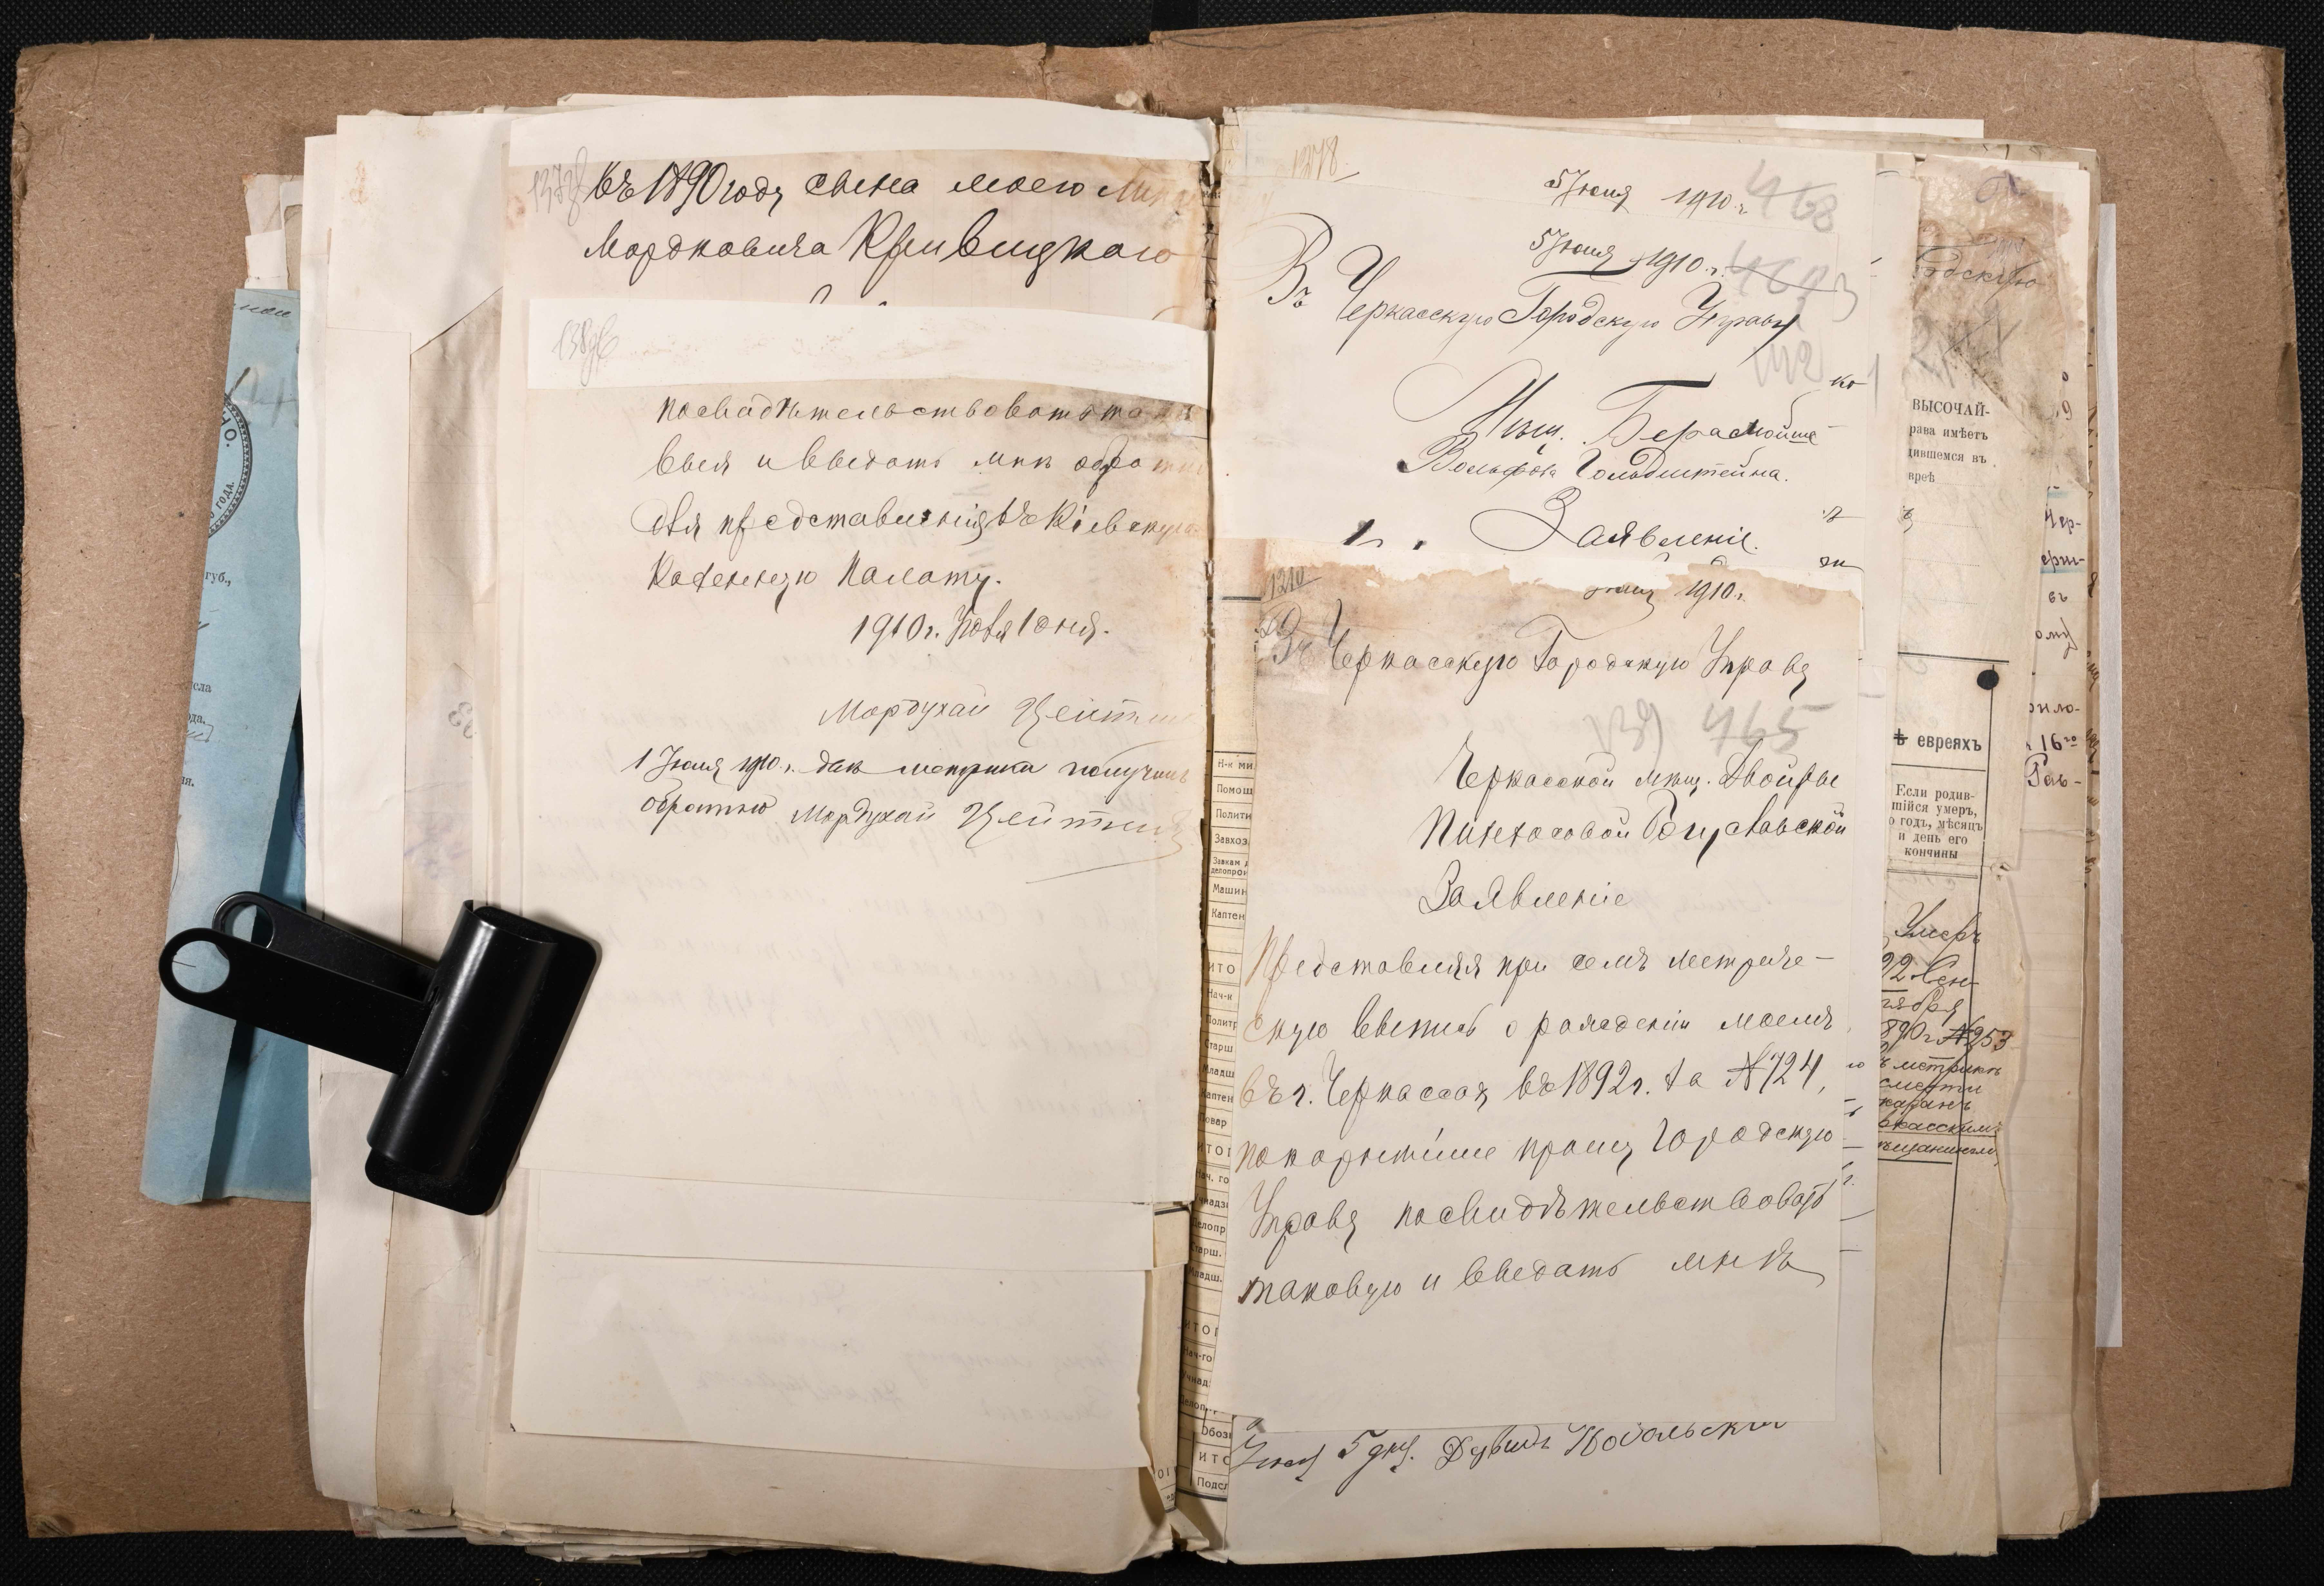 въ 1890 году сына моего
Мордковича Кривицкаго
посвидѣтельствовать
выся и выдать мнѣ обратно
для представленія въ Кіевскую
Казенную Палату.
1910 г. Іюня 1 дня.
Мордухай Цейтлин
1 Іюня 1910 г. две метрики получилъ
обратно Мордухай Цейтлин
1278
5 Іюня 1910 г. 468
5 Іюня 1910 г.
Въ Черкасскую Городскую Управу
142
Мѣщ. Берасмойше
Вольфова Гольдштейна.
Заявленіе.
1210
1910 г.
Въ Черкасскую Городскую Управу
139 465
Черкасской мѣщ. Двойры
Пинхосовой Богуславской
Заявленіе
Представляя при семъ метриче-
скую выпись о рожденіи моемъ
въ г. Черкассах въ 1892 г. за № 724,
покорнѣйше прошу Городскую
Управу посвидѣтельствовать
таковую и выдать мнѣ
5 дня. Дувидъ
одскую
ВЫСОЧАЙ-
рава имѣетъ
дившемся въ
вреѣ
ѣ евреяхъ
Если родив-
шійся умеръ,
о годъ, мѣсяцъ
и день его
кончины
Умеръ
22 Сен-
тября
890 г. № 253
метрикѣ
смерти
Чер-
въ
ому
16го
года.
губ.,
сла
ода.
Н-к ми
Помощ
Полити
Завхоз
Завкам д
делопрои
Машин
Каптен
ИТО
Нач-и
Политр
Старш
Младш
Каптен
Повар
ИТОГ
Нач. го
Делопр
Старш.
Младш.
ИТОГ
Нач-го
Делоп.
Обоз
ИТО
Подсл